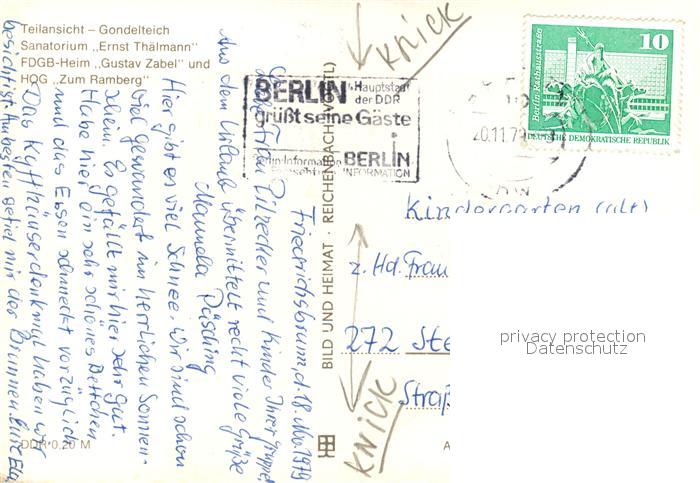 Teilansicht – Gondelteich
Sanatorium „Ernst Thälmann"
FDGB-Heim „Gustav Zabel" und
HOG „Zum Ramberg"
KNICK
BERLIN Hauptstadt
der DDR
grüßt seine Gäste
Berlin-Information BERLIN
INFORMATION
20.11.79
10
Berlin, Rathausstraße
DEUTSCHE DEMOKRATISCHE REPUBLIK
Kindergarten (alt)
z. Hd. Frau
272 Ste
Straß
privacy protection
Datenschutz
Friedrichsbrunn, d. 18. Nov. 1979
Liebe Frau und Kinder Ihrer Gruppe
Aus dem Urlaub übermittelt recht viele Grüße
Manuela Päsching
Hier gibt es viel Schnee. Wir sind schon
viel gewandert im herrlichen Sonnen-
schein. Es gefällt mir hier sehr gut.
Habe hier ein sehr schönes Bettchen
und das Essen schmeckt vorzüglich
Das Kyffhäuserdenkmal haben wir
besichtigt. Am besten gefiel mir der Brunnen.
BILD UND HEIMAT · REICHENBACH (VOGTL)
KNICK
DDR 0,20 M
A